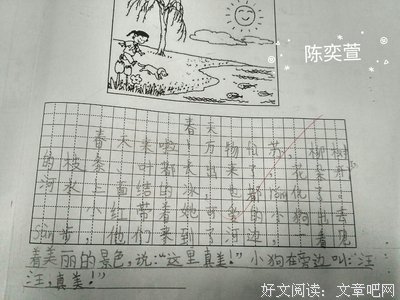 陈奕萱
春天
春天来啦！万物复苏，柳树
的枝条、叶都长出来了，花朵开
河水上面结的冰，也都róng化了。
小红带着她可爱的小狗出去
sàn步，他们来到了河边，一看见
着美丽的景色，说：“这里真美！”小狗在旁边叫“汪
汪，真美！”
好文阅读：文章吧网